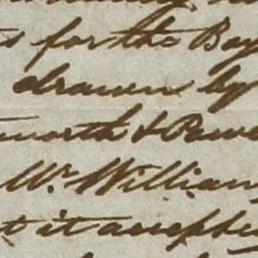 for the Bay
drawn by
worth & Powe
Mr. William
it accepte